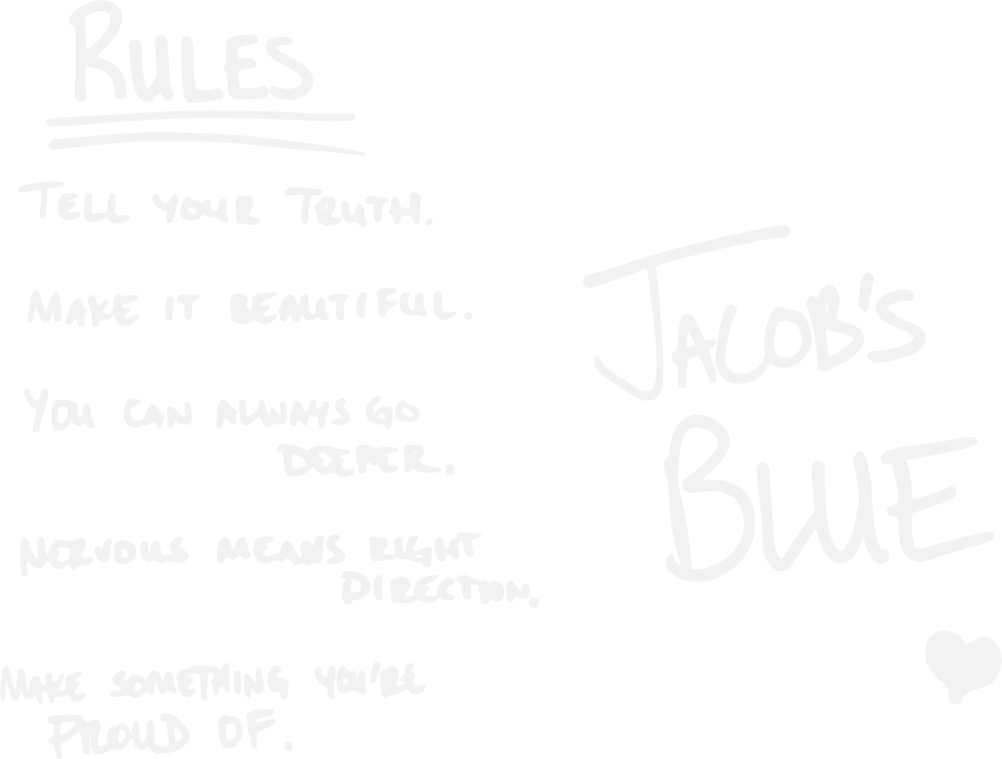 RULES
TELL YOUR TRUTH.
MAKE IT BEAUTIFUL.
YOU CAN ALWAYS GO
DEEPER.
NERVOUS MEANS RIGHT
DIRECTION.
MAKE SOMETHING YOU'RE
PROUD OF.
JACOB'S
BLUE